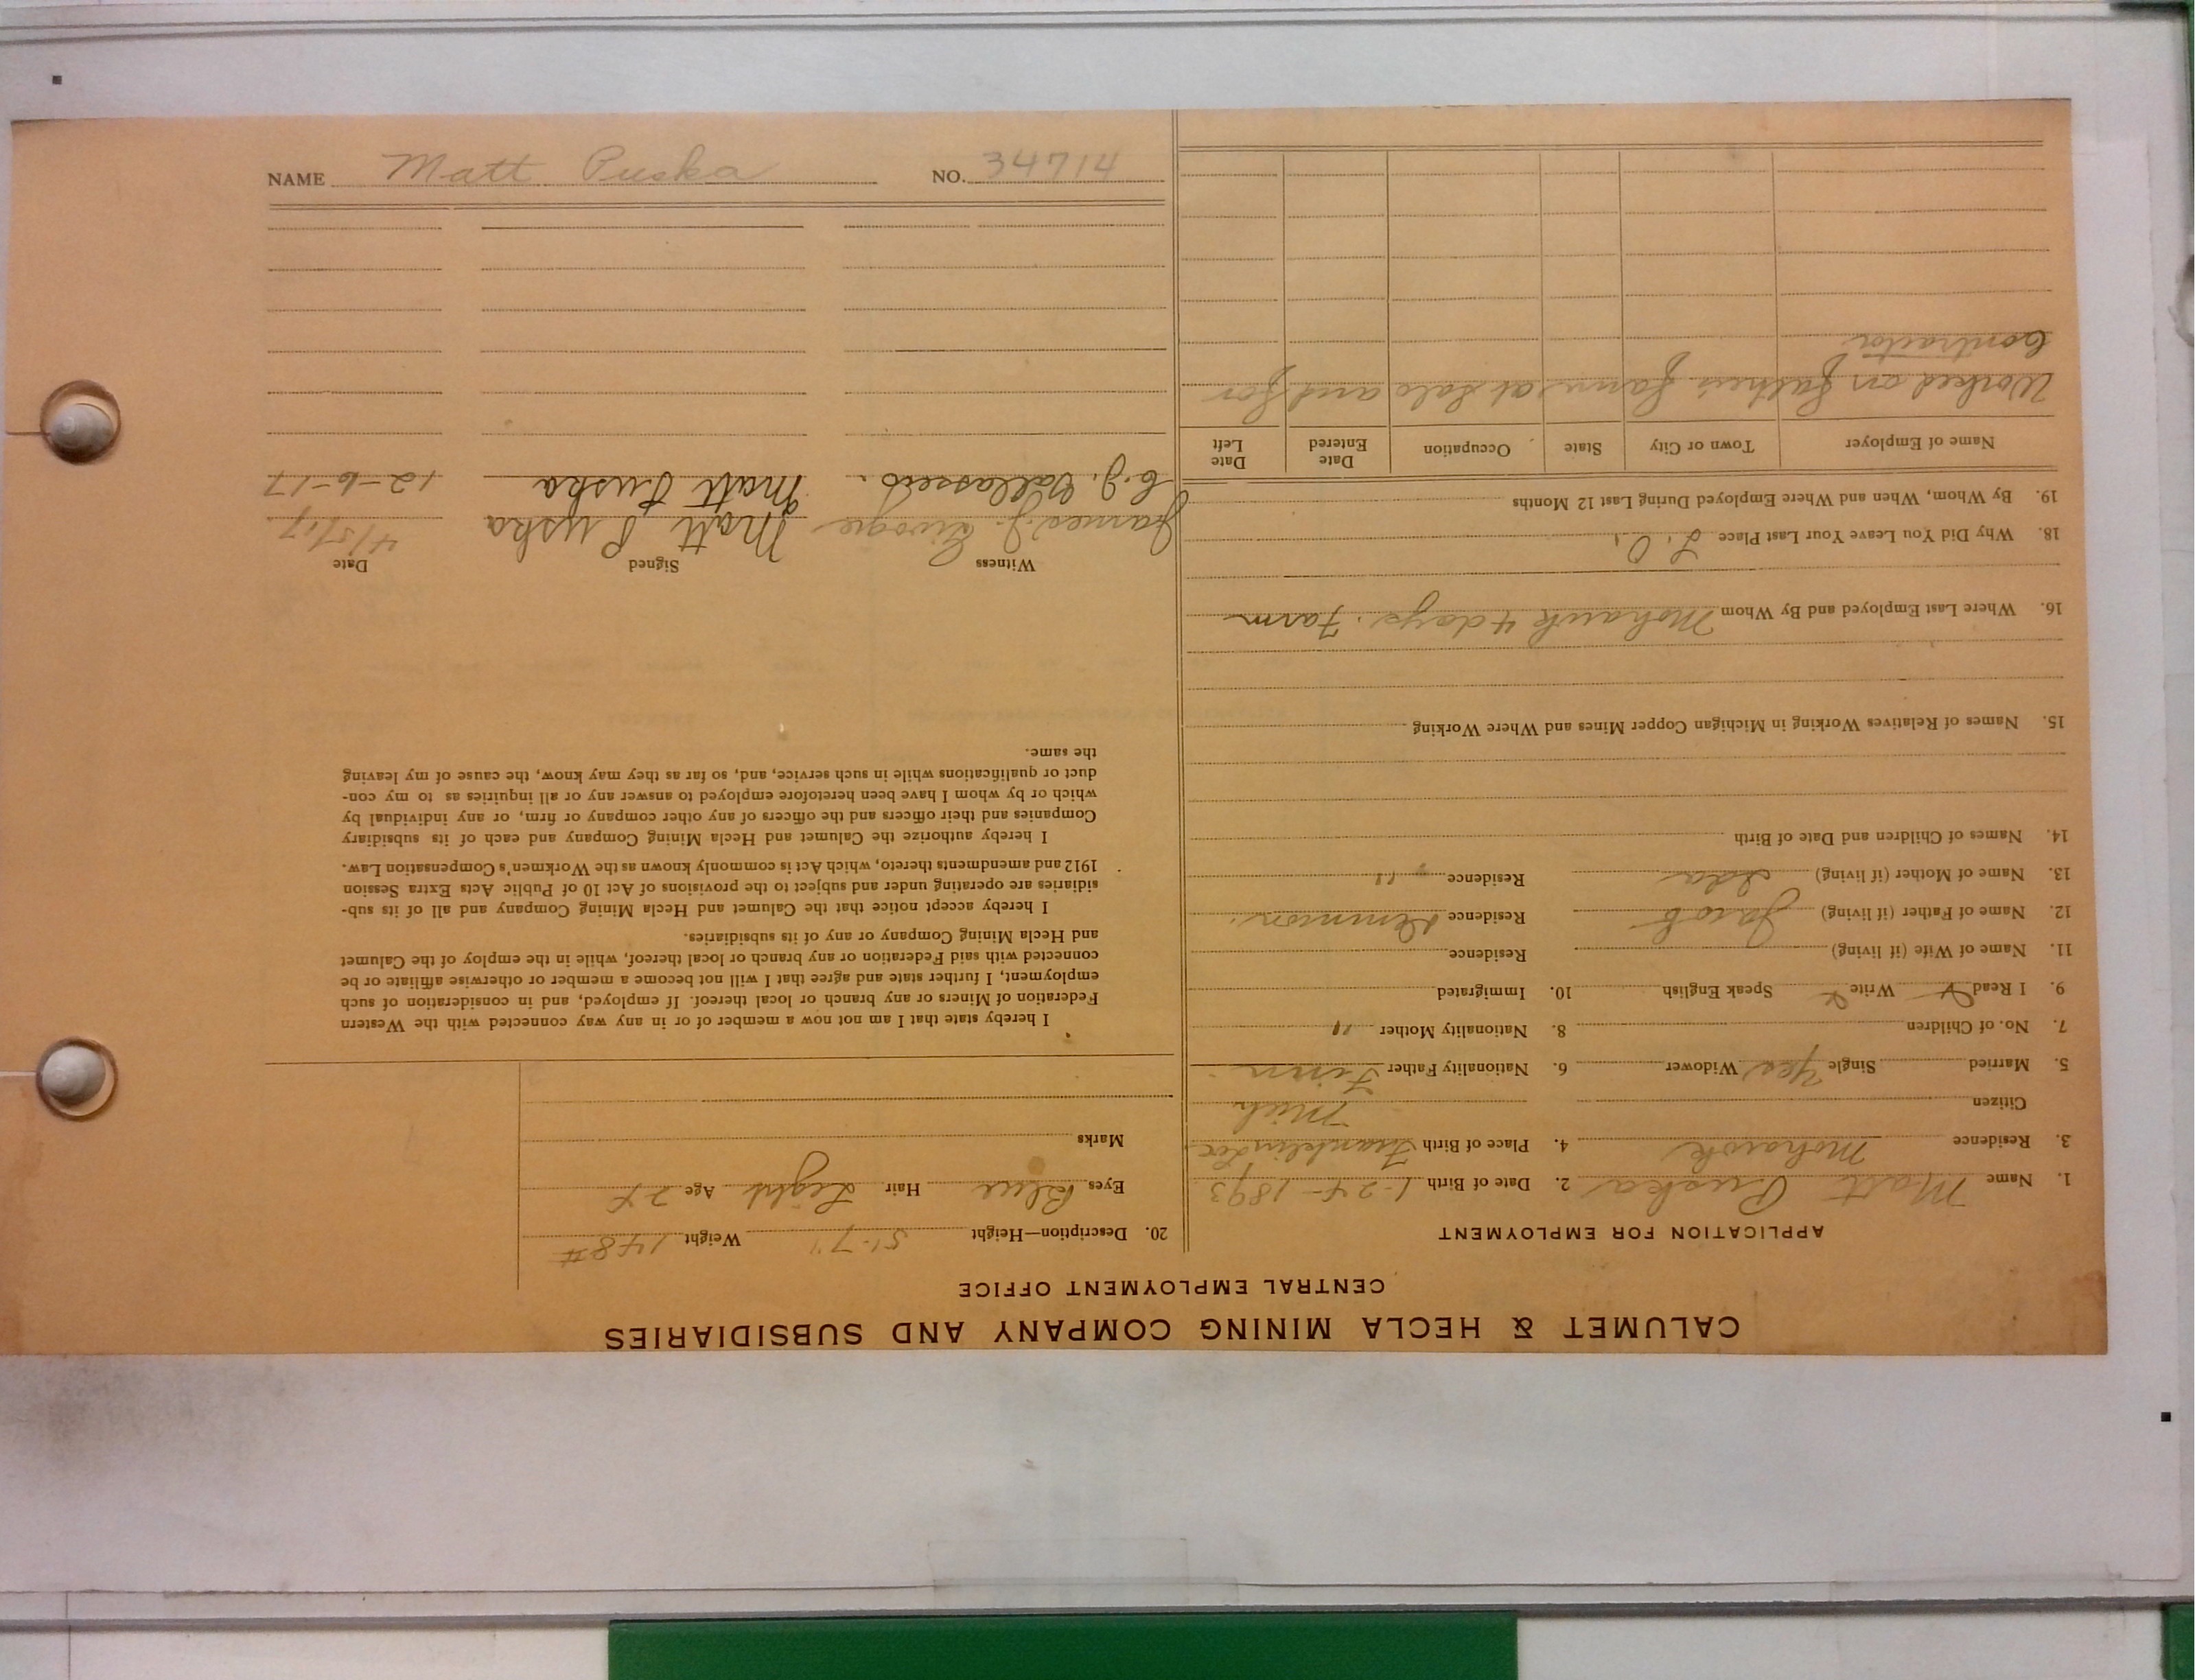 CALUMET & HECLA MINING COMPANY AND SUBSIDIARIES
CENTRAL EMPLOYMENT OFFICE
APPLICATION FOR EMPLOYMENT
1. Name Matt Puska 2. Date of Birth 1-24-1893
3. Residence Mohawk 4. Place of Birth Franklin Loc.
Citizen Mich
5. Married Single Yes Widower 6. Nationality Father Finn
7. No. of Children 8. Nationality Mother "
9. I Read Write Speak English 10. Immigrated
11. Name of Wife (if living) Residence
12. Name of Father (if living) Jacob Residence
13. Name of Mother (if living) Ida Residence "
14. Names of Children and Date of Birth
15. Names of Relatives Working in Michigan Copper Mines and Where Working
16. Where Last Employed and By Whom Mohawk 4 days. Farm
18. Why Did You Leave Your Last Place L. O.
19. By Whom, When and Where Employed During Last 12 Months
Name of Employer Town or City State Occupation Date Entered Date Left
Worked on father's farm at Salo and for
Contractor
20. Description—Height 5'-7" Weight 148#
Eyes Blue Hair Light Age 24
Marks
I hereby state that I am not now a member of or in any way connected with the Western
Federation of Miners or any branch or local thereof. If employed, and in consideration of such
employment, I further state and agree that I will not become a member or otherwise affiliate or be
connected with said Federation or any branch or local thereof, while in the employ of the Calumet
and Hecla Mining Company or any of its subsidiaries.
I hereby accept notice that the Calumet and Hecla Mining Company and all of its sub-
sidiaries are operating under and subject to the provisions of Act 10 of Public Acts Extra Session
1912 and amendments thereto, which Act is commonly known as the Workmen's Compensation Law.
I hereby authorize the Calumet and Hecla Mining Company and each of its subsidiary
Companies and their officers and the officers of any other company or firm, or any individual by
which or by whom I have been heretofore employed to answer any or all inquiries as to my con-
duct or qualifications while in such service, and, so far as they may know, the cause of my leaving
the same.
Witness Signed Date
James J. Matt Puska 4/5/17
C. J. Matt Puska 12-6-17
NAME Matt Puska NO. 34714